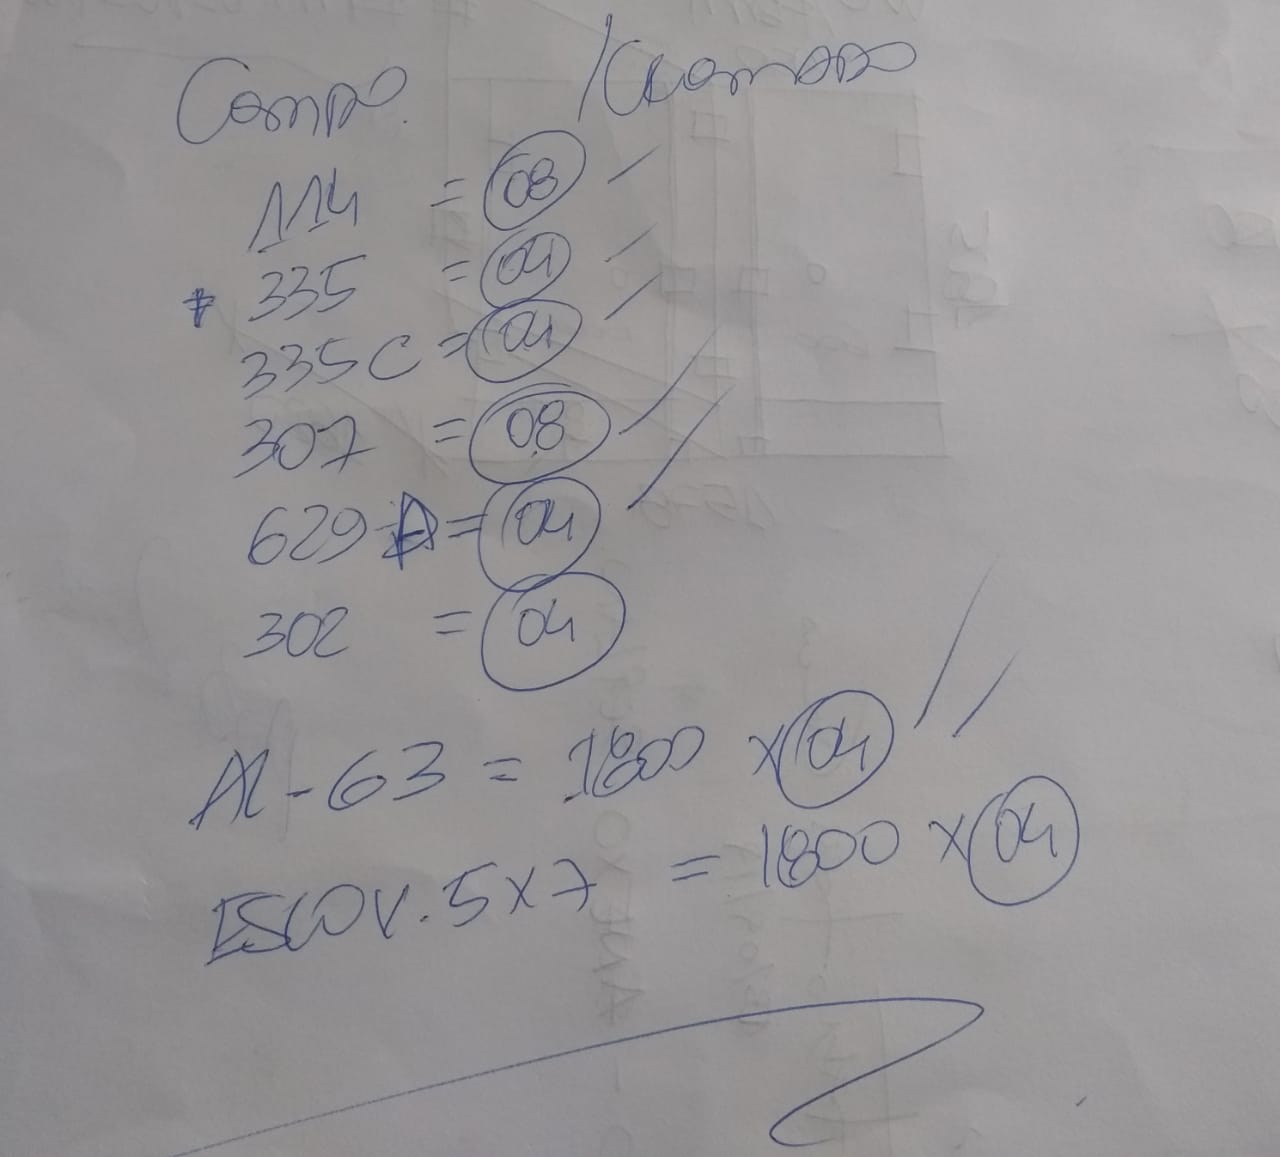 114 = 08
335 = 04
335C = 04
307 = 08
629-A = 04
302 = 04
AL-63 = 1800 x 04
ESCOV. 5x7 = 1800 x 04